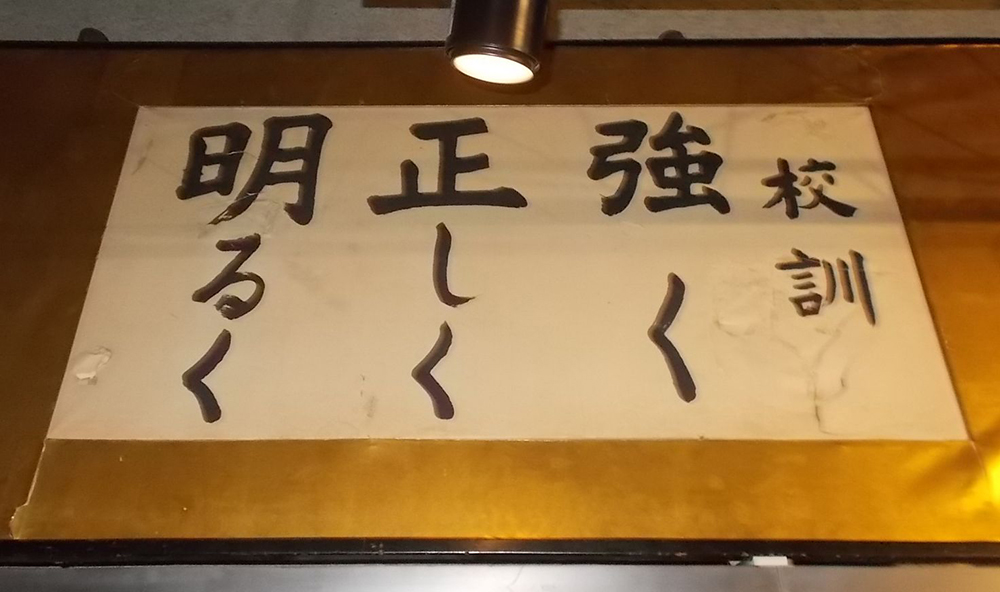 校訓
強く
正しく
明るく